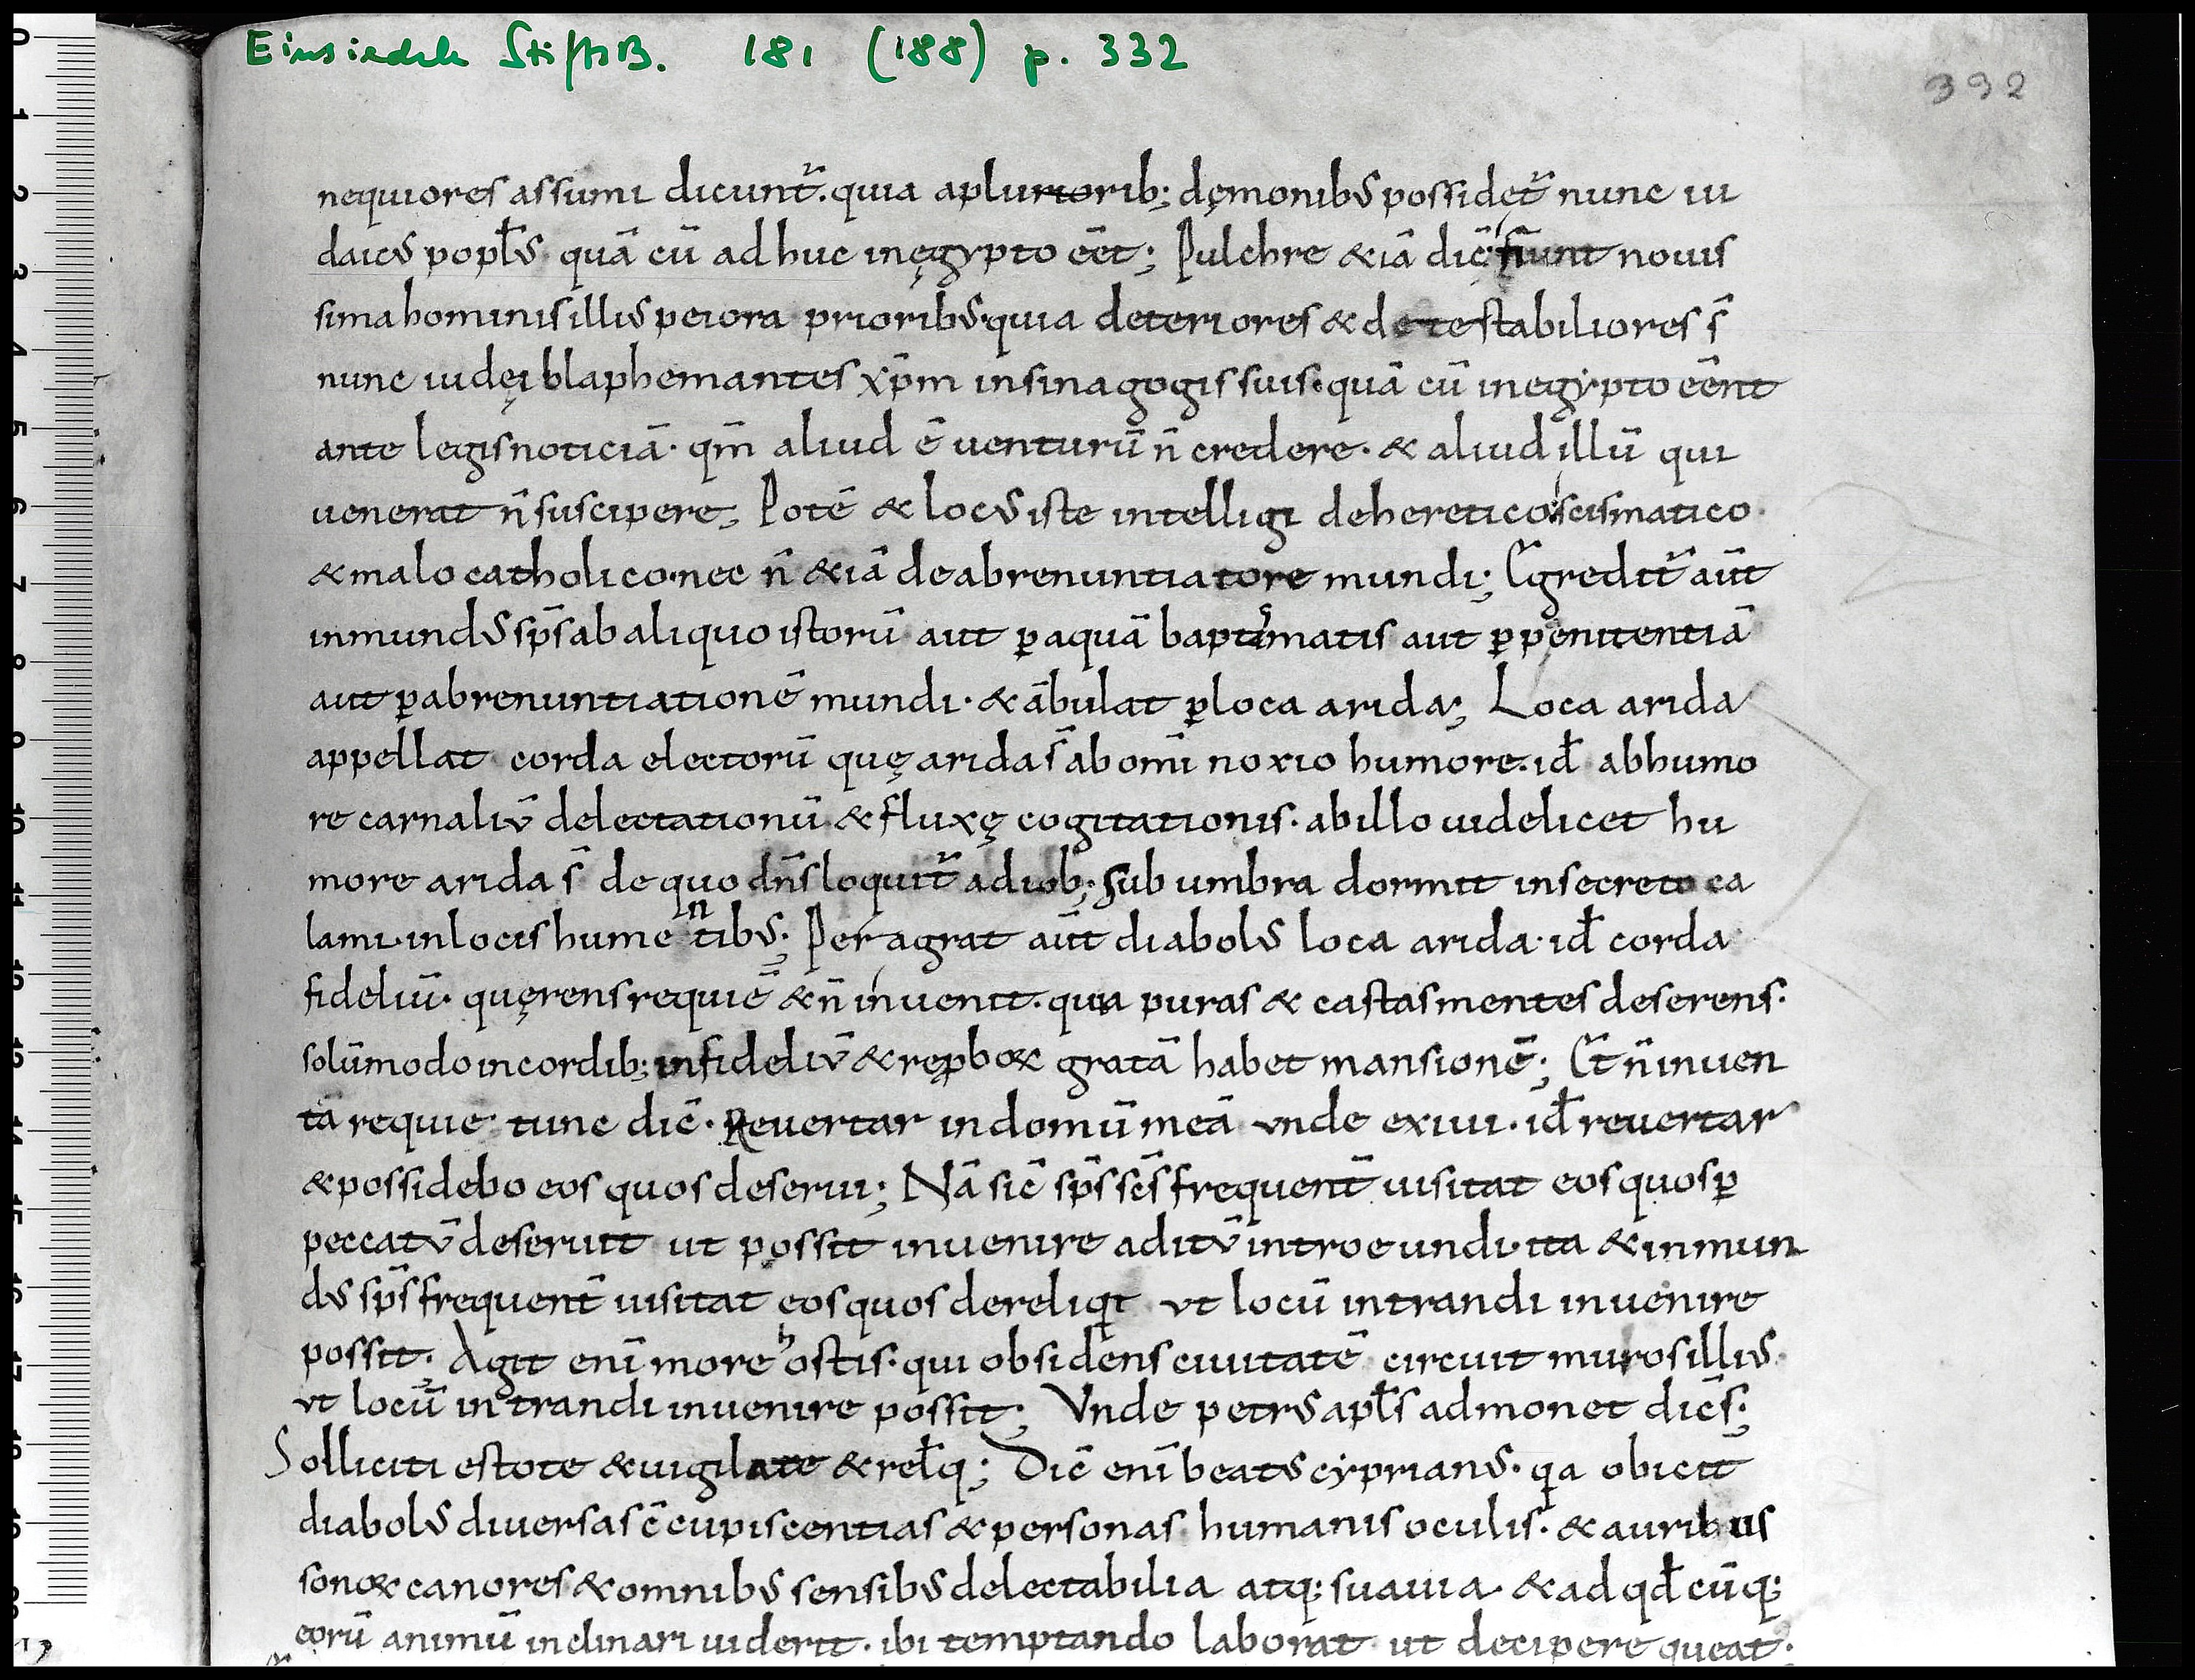 Einsiedeln StiftsB. 181 (188) p. 332
392
nequiores assumi dicunt̄. quia aplurioribꝫ; dęmonibus possidet̄ nunc iu
daicus popl̄s quā cū ad huc in ęgypto ēēt; Pulchre &iā dic̄ fiunt nouis
sima hominis illius peiora prioribus. quia deteriores & detestabiliores s̄
nunc iudęi blaphemantes xp̄m in sinagogis suis. quā cū in egẏpto ēēnt
ante legis noticiā. qm̄ aliud ē uenturū n̄ credere. & aliud illū qui
uenerat n̄ suscipere; Potē & locus iste intelligi de heretico scismatico.
& malo catholico. nec n̄ &iā de abrenuntiatore mundi; Egredit̄ aūt
inmundus sp̄s ab aliquo istorū aut ꝑ aquā baptismatis aut ꝑ penitentiā
aut ꝑ abrenuntiationē mundi. & ābulat ꝑ loca arida; Loca arida
appellat corda electorū quę arida s̄ ab om̄i noxio humore. id̄ ab humo
re carnaliū delectationū & fluxę cogitationis. ab illo uidelicet hu
more arida s̄ de quo dn̄s loquit̄ ad iob; sub umbra dormit in secreto ca
lami. in locis humentibus; Peragrat aūt diabolus loca arida. id̄ corda
fideliū. quęrens requiē & n̄ inuenit. quia puras & castas mentes deserens.
solūmodo in cordibꝫ; infideliū & rep̱boꝝ gratā habet mansionē; Et n̄ inuen
tā requie tunc dic̄. Reuertar in domū meā unde exiui. id̄ reuertar
& possidebo eos quos deserui; Nā sic̄ sp̄s sc̄s frequent̄ uisitat eos quos ꝑ
peccatū deseruit ut possit inuenire aditū introeundi. ita & inmun
dus sp̄s frequent̄ uisitat eos quos dereliqt ut locū intrandi inuenire
possit. Agit enī more hostis. qui obsidens ciuitatē circuit muros illius.
ut locū intrandi inuenire possit; Vnde petrus apl̄s admonet dic̄s;
Solliciti estote & uigilate & rel̄q; Dic̄ enī beatus cẏprianus. qa obicit
diabolus diuersas c̄cupiscentias & personas humanis oculis. & auribus
sonoꝝ canores & omnibus sensibus delectabilia atqꝫ suauia. & ad qd̄ cūqꝫ
eorū animū inclinari uiderit. ibi temptando laborat ut decipere queat.